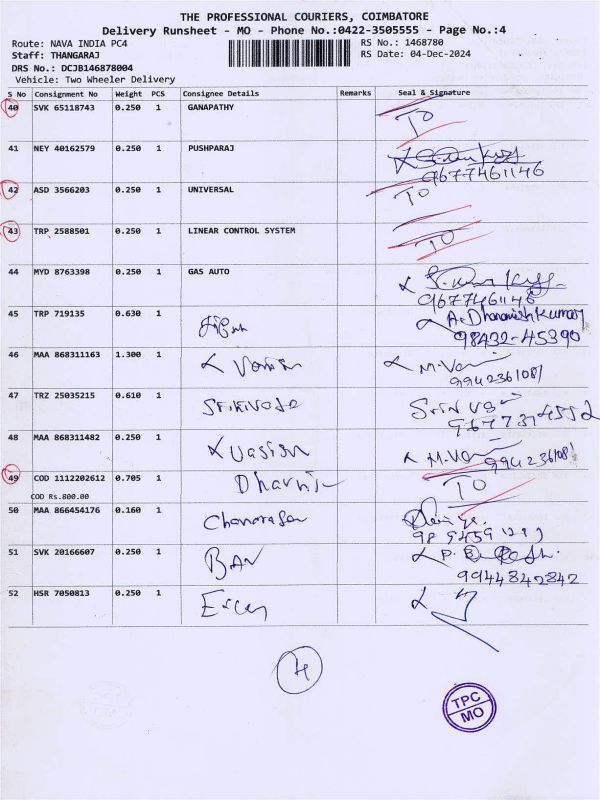 THE PROFESSIONAL COURIERS, COIMBATORE
Delivery Runsheet - MO - Phone No.:0422-3505555 - Page No.:4
Route: NAVA INDIA PC4 RS No.: 1468780
Staff: THANGARAJ RS Date: 04-Dec-2024
DRS No.: DCJB146878004
Vehicle: Two Wheeler Delivery
S No Consignment No Weight PCS Consignee Details Remarks Seal & Signature
40 SVK 65118743 0.250 1 GANAPATHY TO
41 NEY 40162579 0.250 1 PUSHPARAJ
9677461146
42 ASD 3566203 0.250 1 UNIVERSAL TO
43 TRP 2588501 0.250 1 LINEAR CONTROL SYSTEM TO
44 MYD 8763398 0.250 1 GAS AUTO
9677461146
45 TRP 719135 0.630 1 A. Dhananish Kumar
98432-45390
46 MAA 868311163 1.300 1 M.Va
9942361081
47 TRZ 25035215 0.610 1
48 MAA 868311482 0.250 1 M.Va 9942361081
49 COD 1112202612 0.705 1 Dharni TO
COD Rs.800.00
50 MAA 866454176 0.160 1
51 SVK 20166607 0.250 1
9944842842
52 HSR 7050813 0.250 1
4
TPC
MO